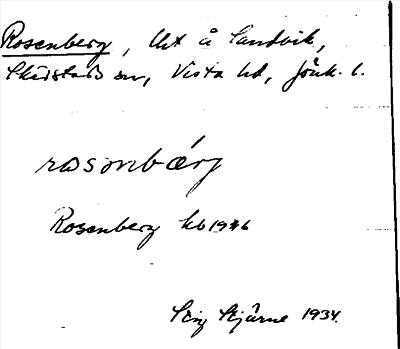 Rosenberg, lht å Sandvik,
Skärstads sn, Vista hd, Jönk. l.
rosombærj
Rosenberg kb 1946
Stig Stjärne 1934.